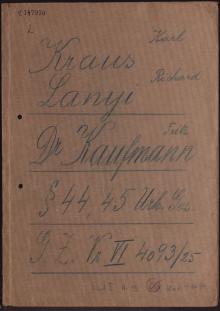 Karl
Kraus
Richard
Lanyi
Fritz
Dr Kaufmann
§ 44, 45 Urh. Ges.
G. Z. Vr VI 4093/25